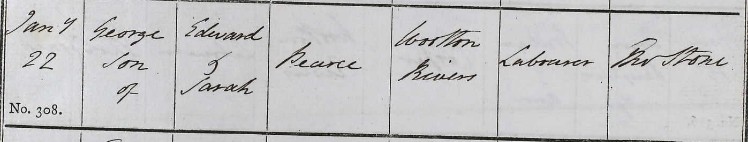 Jany
22
No. 308.
George
Son
of
Edward
&
Sarah
Pearce
Wootton
Rivers
Labourer
Thos Stone